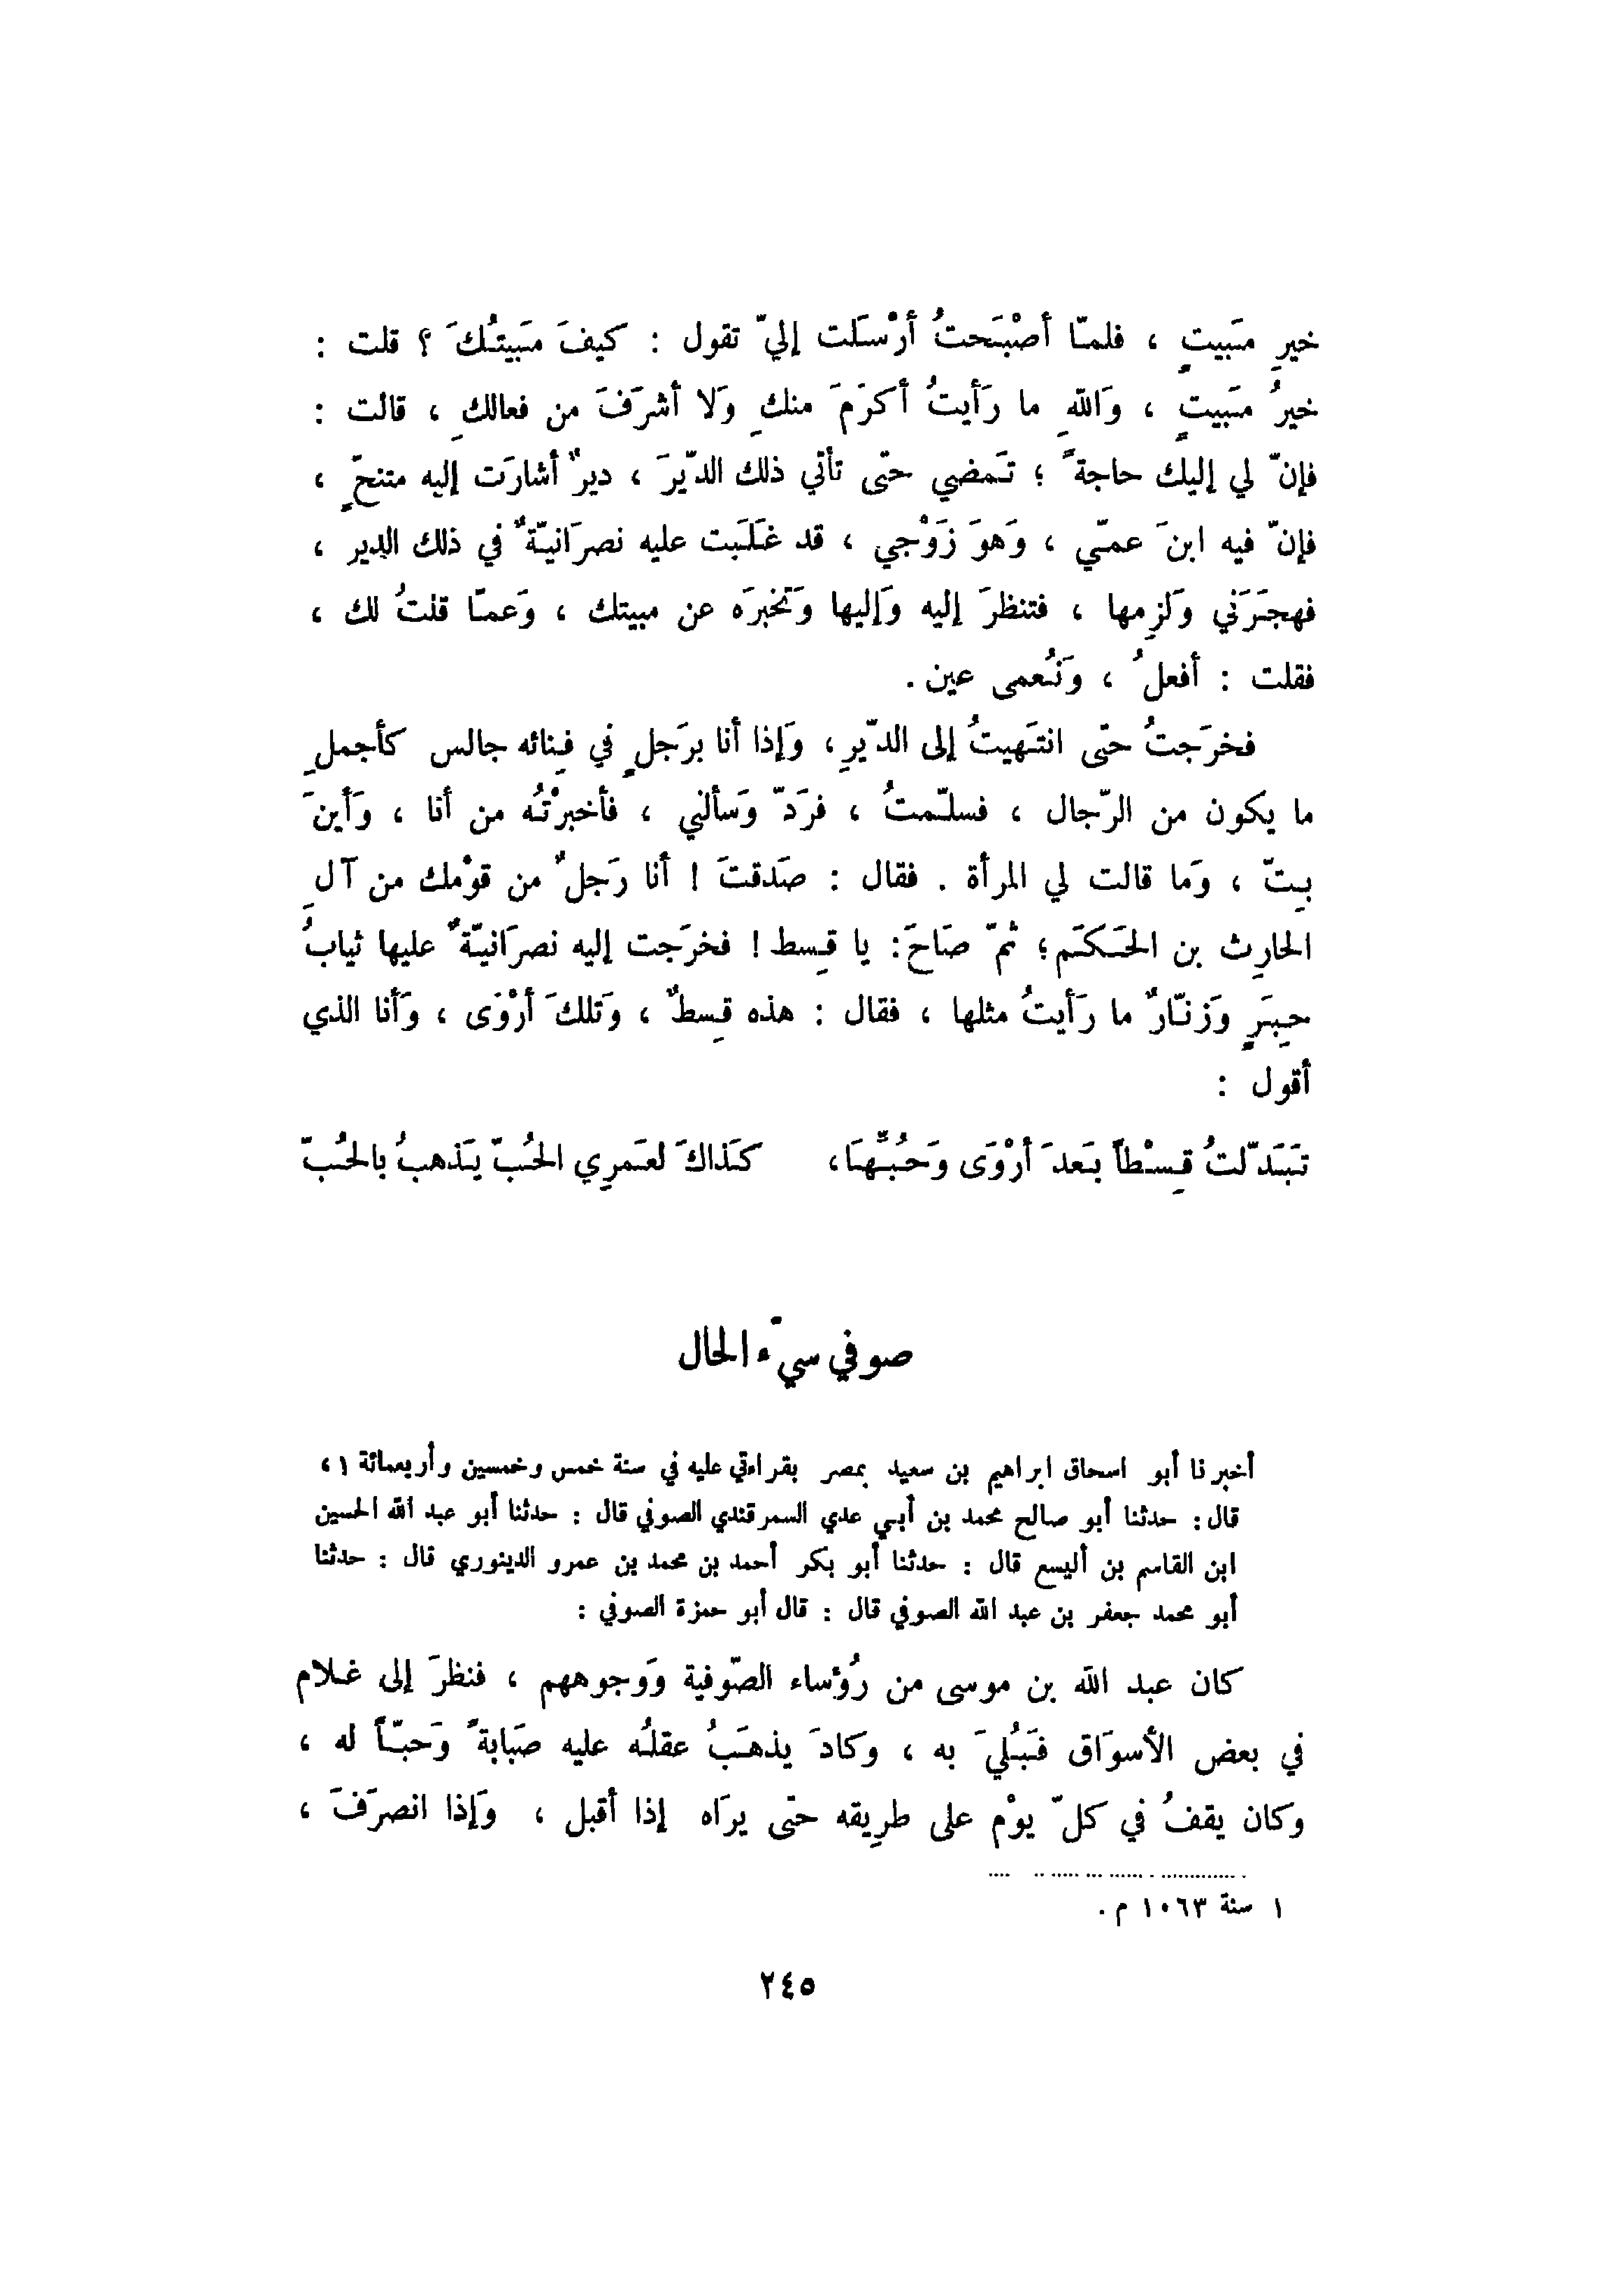 خيرِ مَبيتٍ ، فلمّا أصْبَحتُ أرْسَلت إليّ تقول : كيفَ مَبيتُكَ ؟ قلت :
خيرُ مَبيتٍ ، وَاللّهِ ما رَأيتُ أكرَمَ منكِ وَلا أشرَفَ من فعالكِ ، قالت :
فإنّ لي إليك حاجةً ؛ تَمضي حتّى تأتي ذلك الدّيرَ ، ديرٌ أشارَت إليه متنحٍّ ،
فإنّ فيه ابنَ عمّي ، وَهوَ زَوْجي ، قد غَلَبت عليه نصرَانيّةٌ في ذلك الدير ،
فهجَرَني وَلزِمها ، فتنظرَ إليه وَإليها وَتخبرَه عن مبيتك ، وَعمّا قلتُ لك ،
فقلت : أفعلُ ، وَنُعمى عين .
فخرَجتُ حتّى انتَهيتُ إلى الدّيرِ ، وَإذا أنا برَجلٍ في فِنائه جالس كأجملِ
ما يكون من الرّجال ، فسلّمتُ ، فرَدّ وَسألني ، فأخبرْتُه من أنا ، وَأينَ
بِتّ ، وَما قالت لي المرأة . فقال : صَدقتَ ! أنا رَجلٌ من قوْمك من آلِ
الحارِث بن الحَكَم ؛ ثمّ صَاحَ : يا قِسط ! فخرَجت إليه نصرَانيّةٌ عليها ثيابُ
حِبَرٍ وَزنّارٌ ما رَأيتُ مثلها ، فقال : هذه قِسطٌ ، وَتلكَ أرْوَى ، وَأنا الذي
أقول :
تَبَدّلتُ قِسْطاً بَعدَ أرْوَى وَحُبِّهَا ، كَذاكَ لعَمرِي الحُبّ يَذهبُ بالحُبّ
صوفي سيّء الحال
أخبرنا أبو اسحاق ابراهيم بن سعيد بمصر بقراءتي عليه في سنة خمس وخمسين وأربعمائة ١ ،
قال : حدثنا أبو صالح محمد بن أبي عدي السمرقندي الصوفي قال : حدثنا أبو عبد الله الحسين
ابن القاسم بن أليسع قال : حدثنا أبو بكر أحمد بن محمد بن عمرو الدينوري قال : حدثنا
أبو محمد جعفر بن عبد الله الصوفي قال : قال أبو حمزة الصوفي :
كان عبد الله بن موسى من رُؤساء الصّوفية وَوجوههم ، فنظرَ إلى غلام
في بعض الأسوَاق فَبُليَ به ، وكادَ يذهَبُ عقلُه عليه صَبابةً وَحبّاً له ،
وكان يقفُ في كلّ يوْم على طرِيقه حتّى يرَاه إذا أقبل ، وَإذا انصرَفَ ،
١ سنة ١٠٦٣ م .
٢٤٥